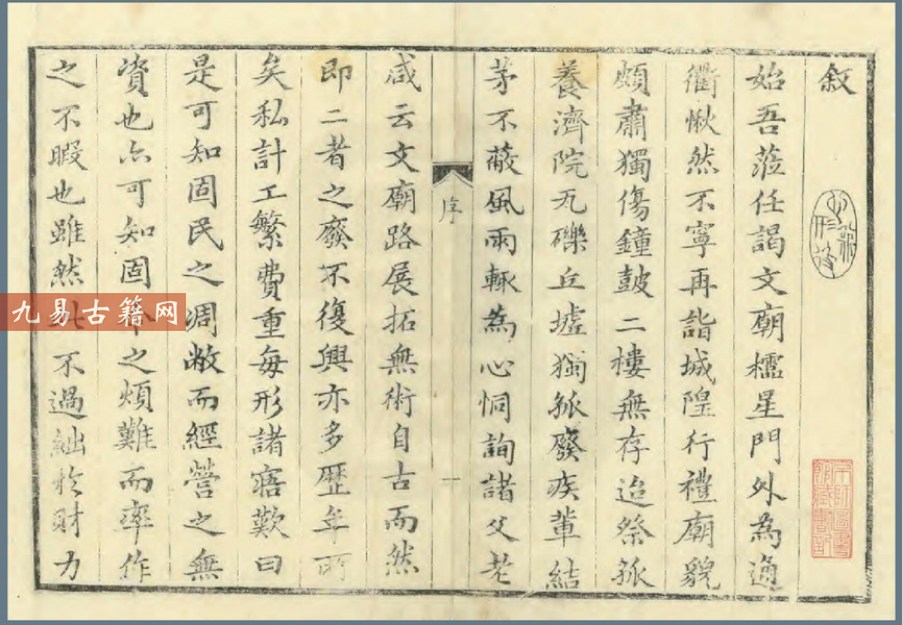 敘
始吾蒞任謁文廟櫺星門外為通
衢愀然不寧再詣城隍行禮廟貌
頗肅獨傷鐘鼓二樓無存迨祭孤
養濟院瓦礫丘墟獨孤廢疾輩結
茅不蔽風雨輒為心恫詢諸父老
序
一
咸云文廟路展拓無術自古而然
即二者之廢不復興亦多歷年所
矣私計工繁費重每形諸寤歎曰
是可知固民之凋敝而經營之無
資也亦可知固之煩難而率作
之不暇也雖然不過絀於財力
九易古籍网